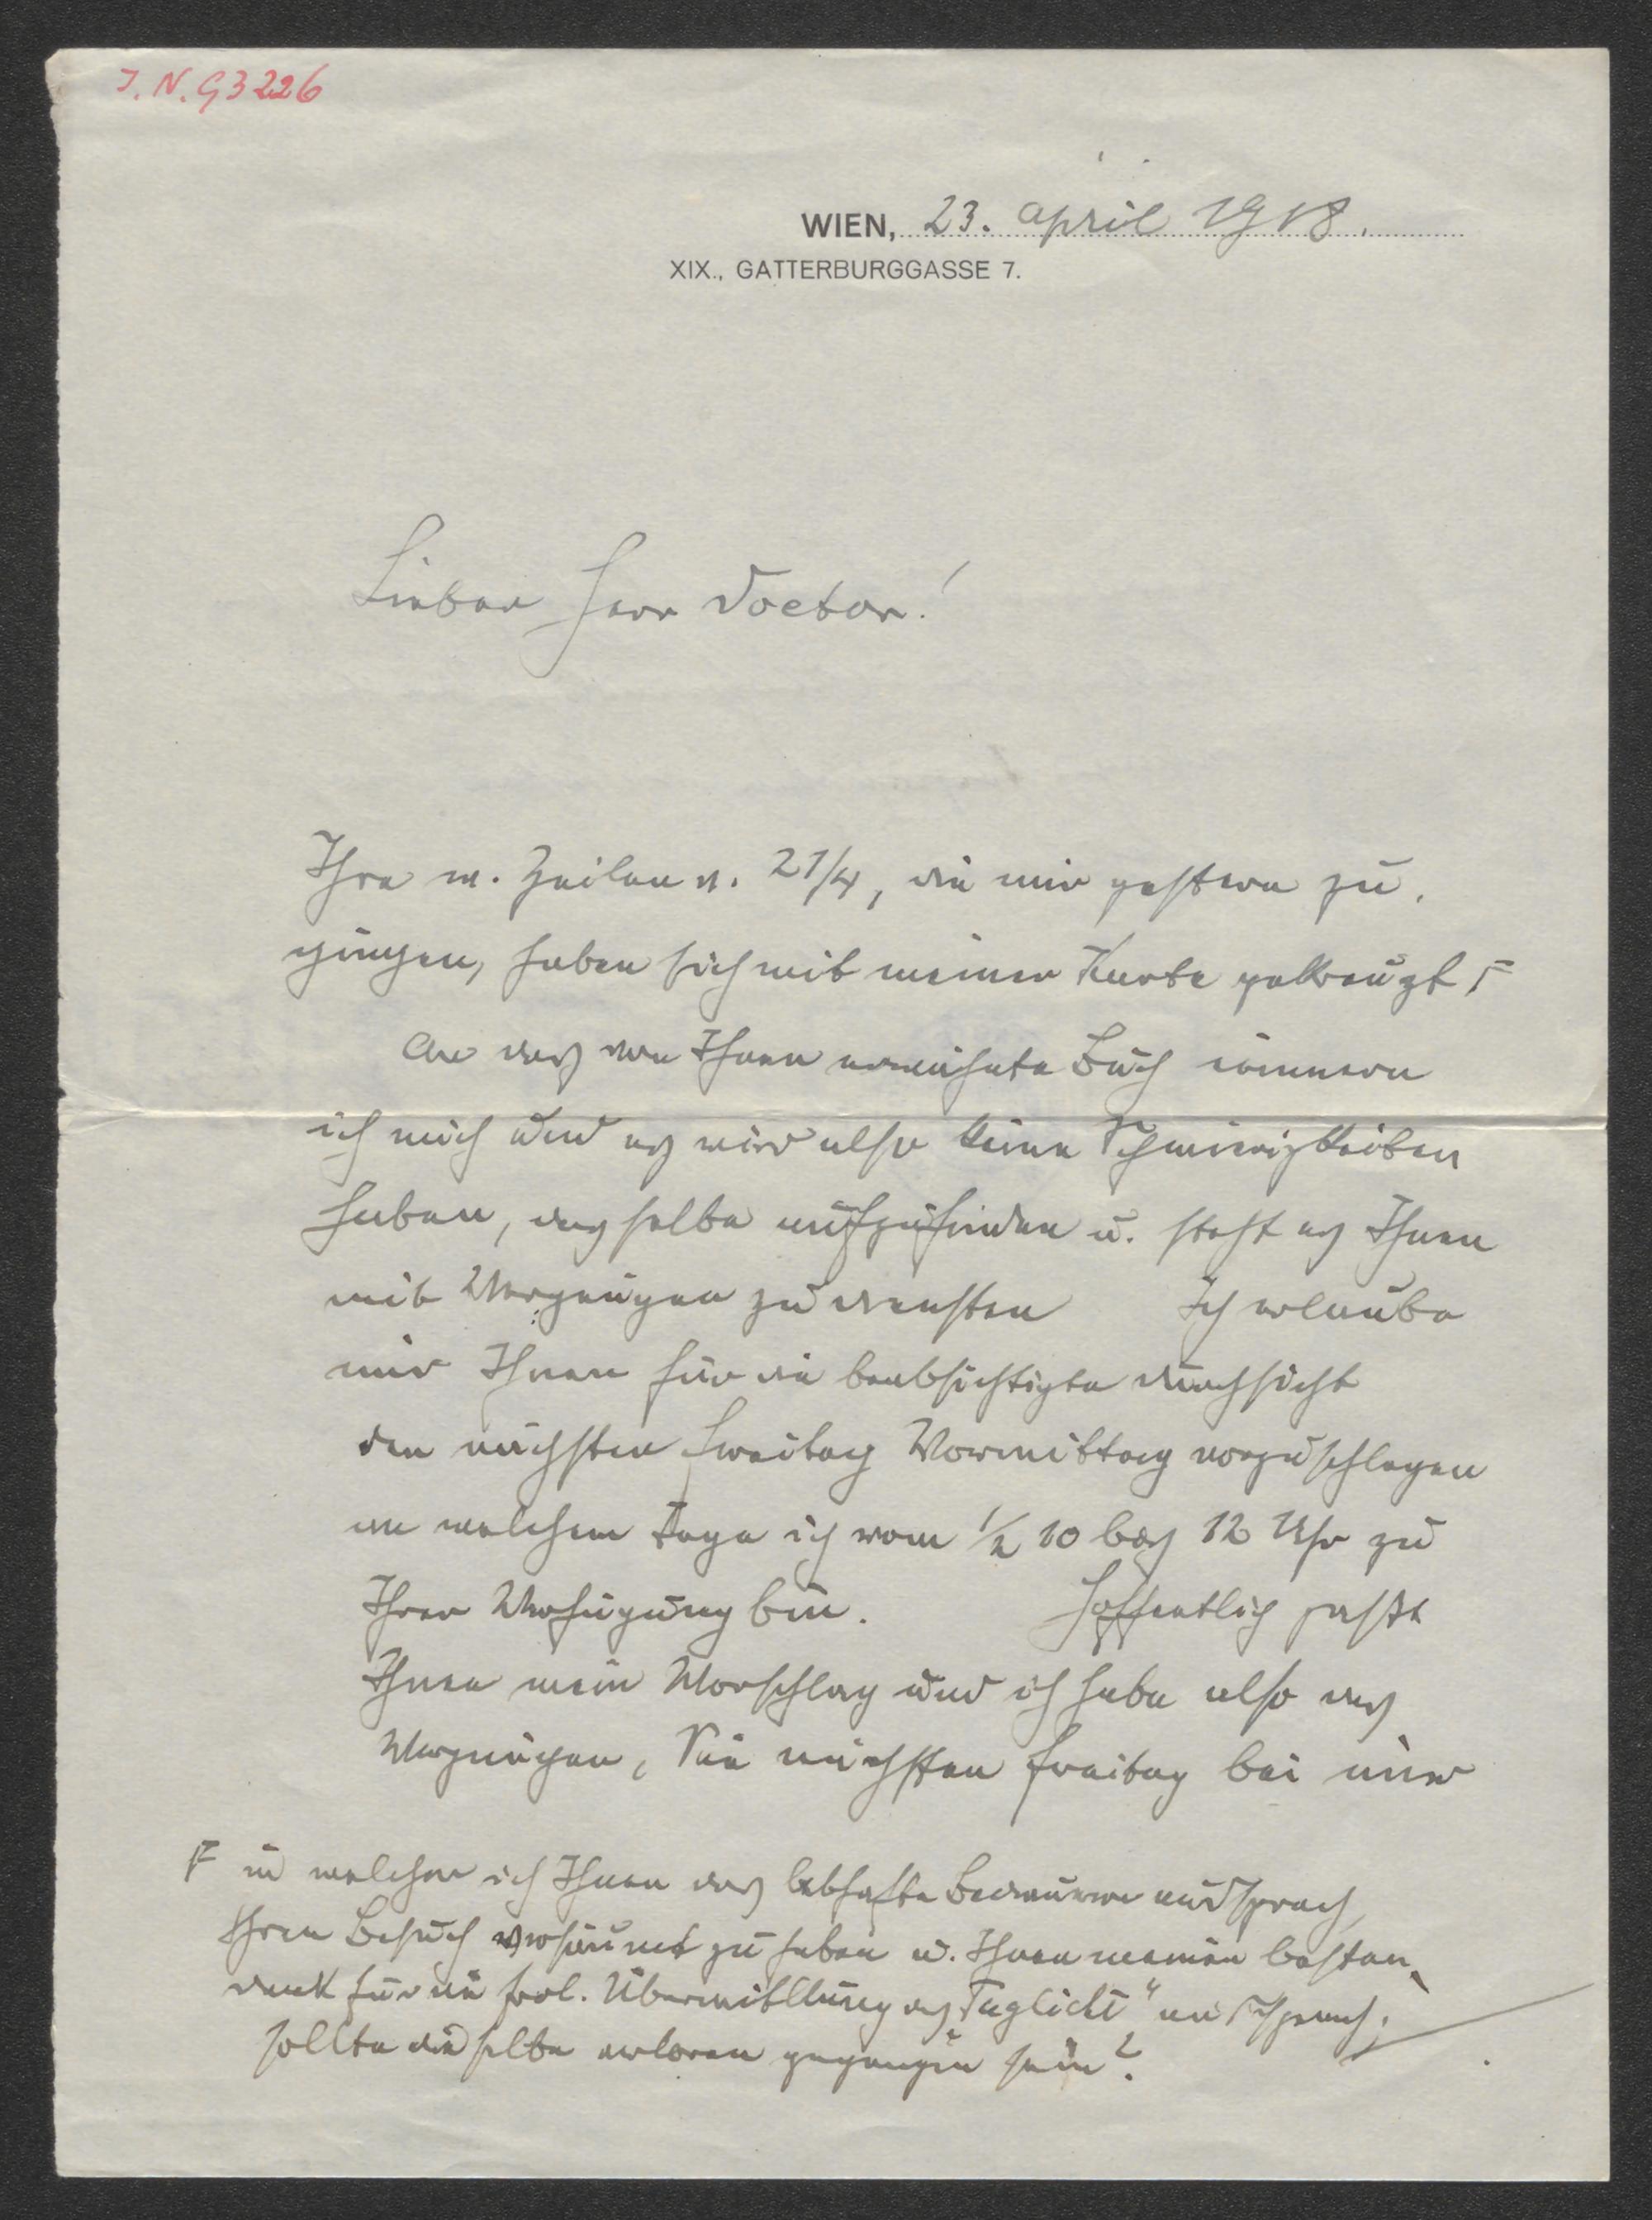 J. N. 93226
WIEN, 23. April 1918.
XIX., GATTERBURGGASSE 7.
Lieber Herr Doctor!
Ihre w. Zeilen v. 21/4, die mir gestern zu-
gingen, haben sich mit meiner Karte gekreuzt F
An das von Ihnen erwähnte Buch erinnere
ich mich und es wird also keine Schwierigkeiten
haben, dasselbe aufzufinden u. steht es Ihnen
mit Vergnügen zu diensten Ich erlaube
mir Ihnen für die beabsichtigte Durchsicht
den nächsten Freitag Vormittag vorzuschlagen
an welchem Tage ich vom 1/2 10 bis 12 Uhr zu
Ihrer Verfügung bin. Hoffentlich passt
Ihnen mein Vorschlag und ich habe also das
Vergnügen, Sie nächsten Freitag bei mir
F in welcher ich Ihnen das lebhafte Bedauern aussprach,
Ihren Besuch versäumt zu haben u. Ihnen meinen besten
Dank für die frdl. Übermittllung des "Taglicht" aussprach;
sollte dieselbe verloren gegangen sein?